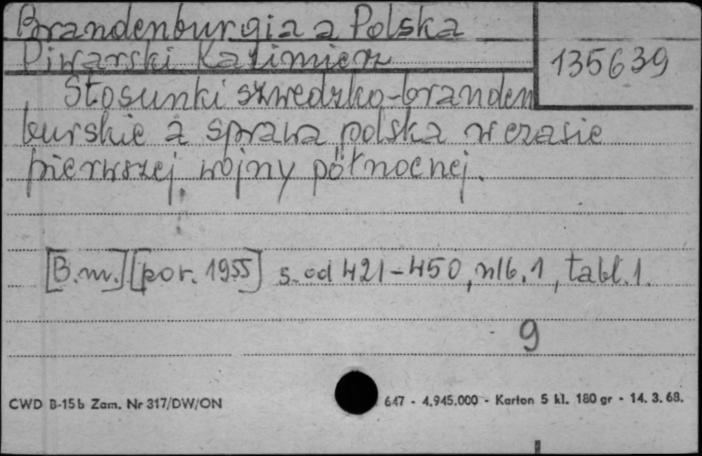 Brandenburgia a Polska
Piwarski Kazimierz
135639
Stosunki szwedzko-branden
burskie a sprawa polska w czasie
pierwszej wojny północnej.
[B.m.] [por. 1955] s. od 421-450, nlb. 1, tabl. 1.
9
CWD B-15b Zam. Nr 317/DW/ON
647 - 4.945.000 - Karton 5 kl. 180 gr - 14. 3. 68.